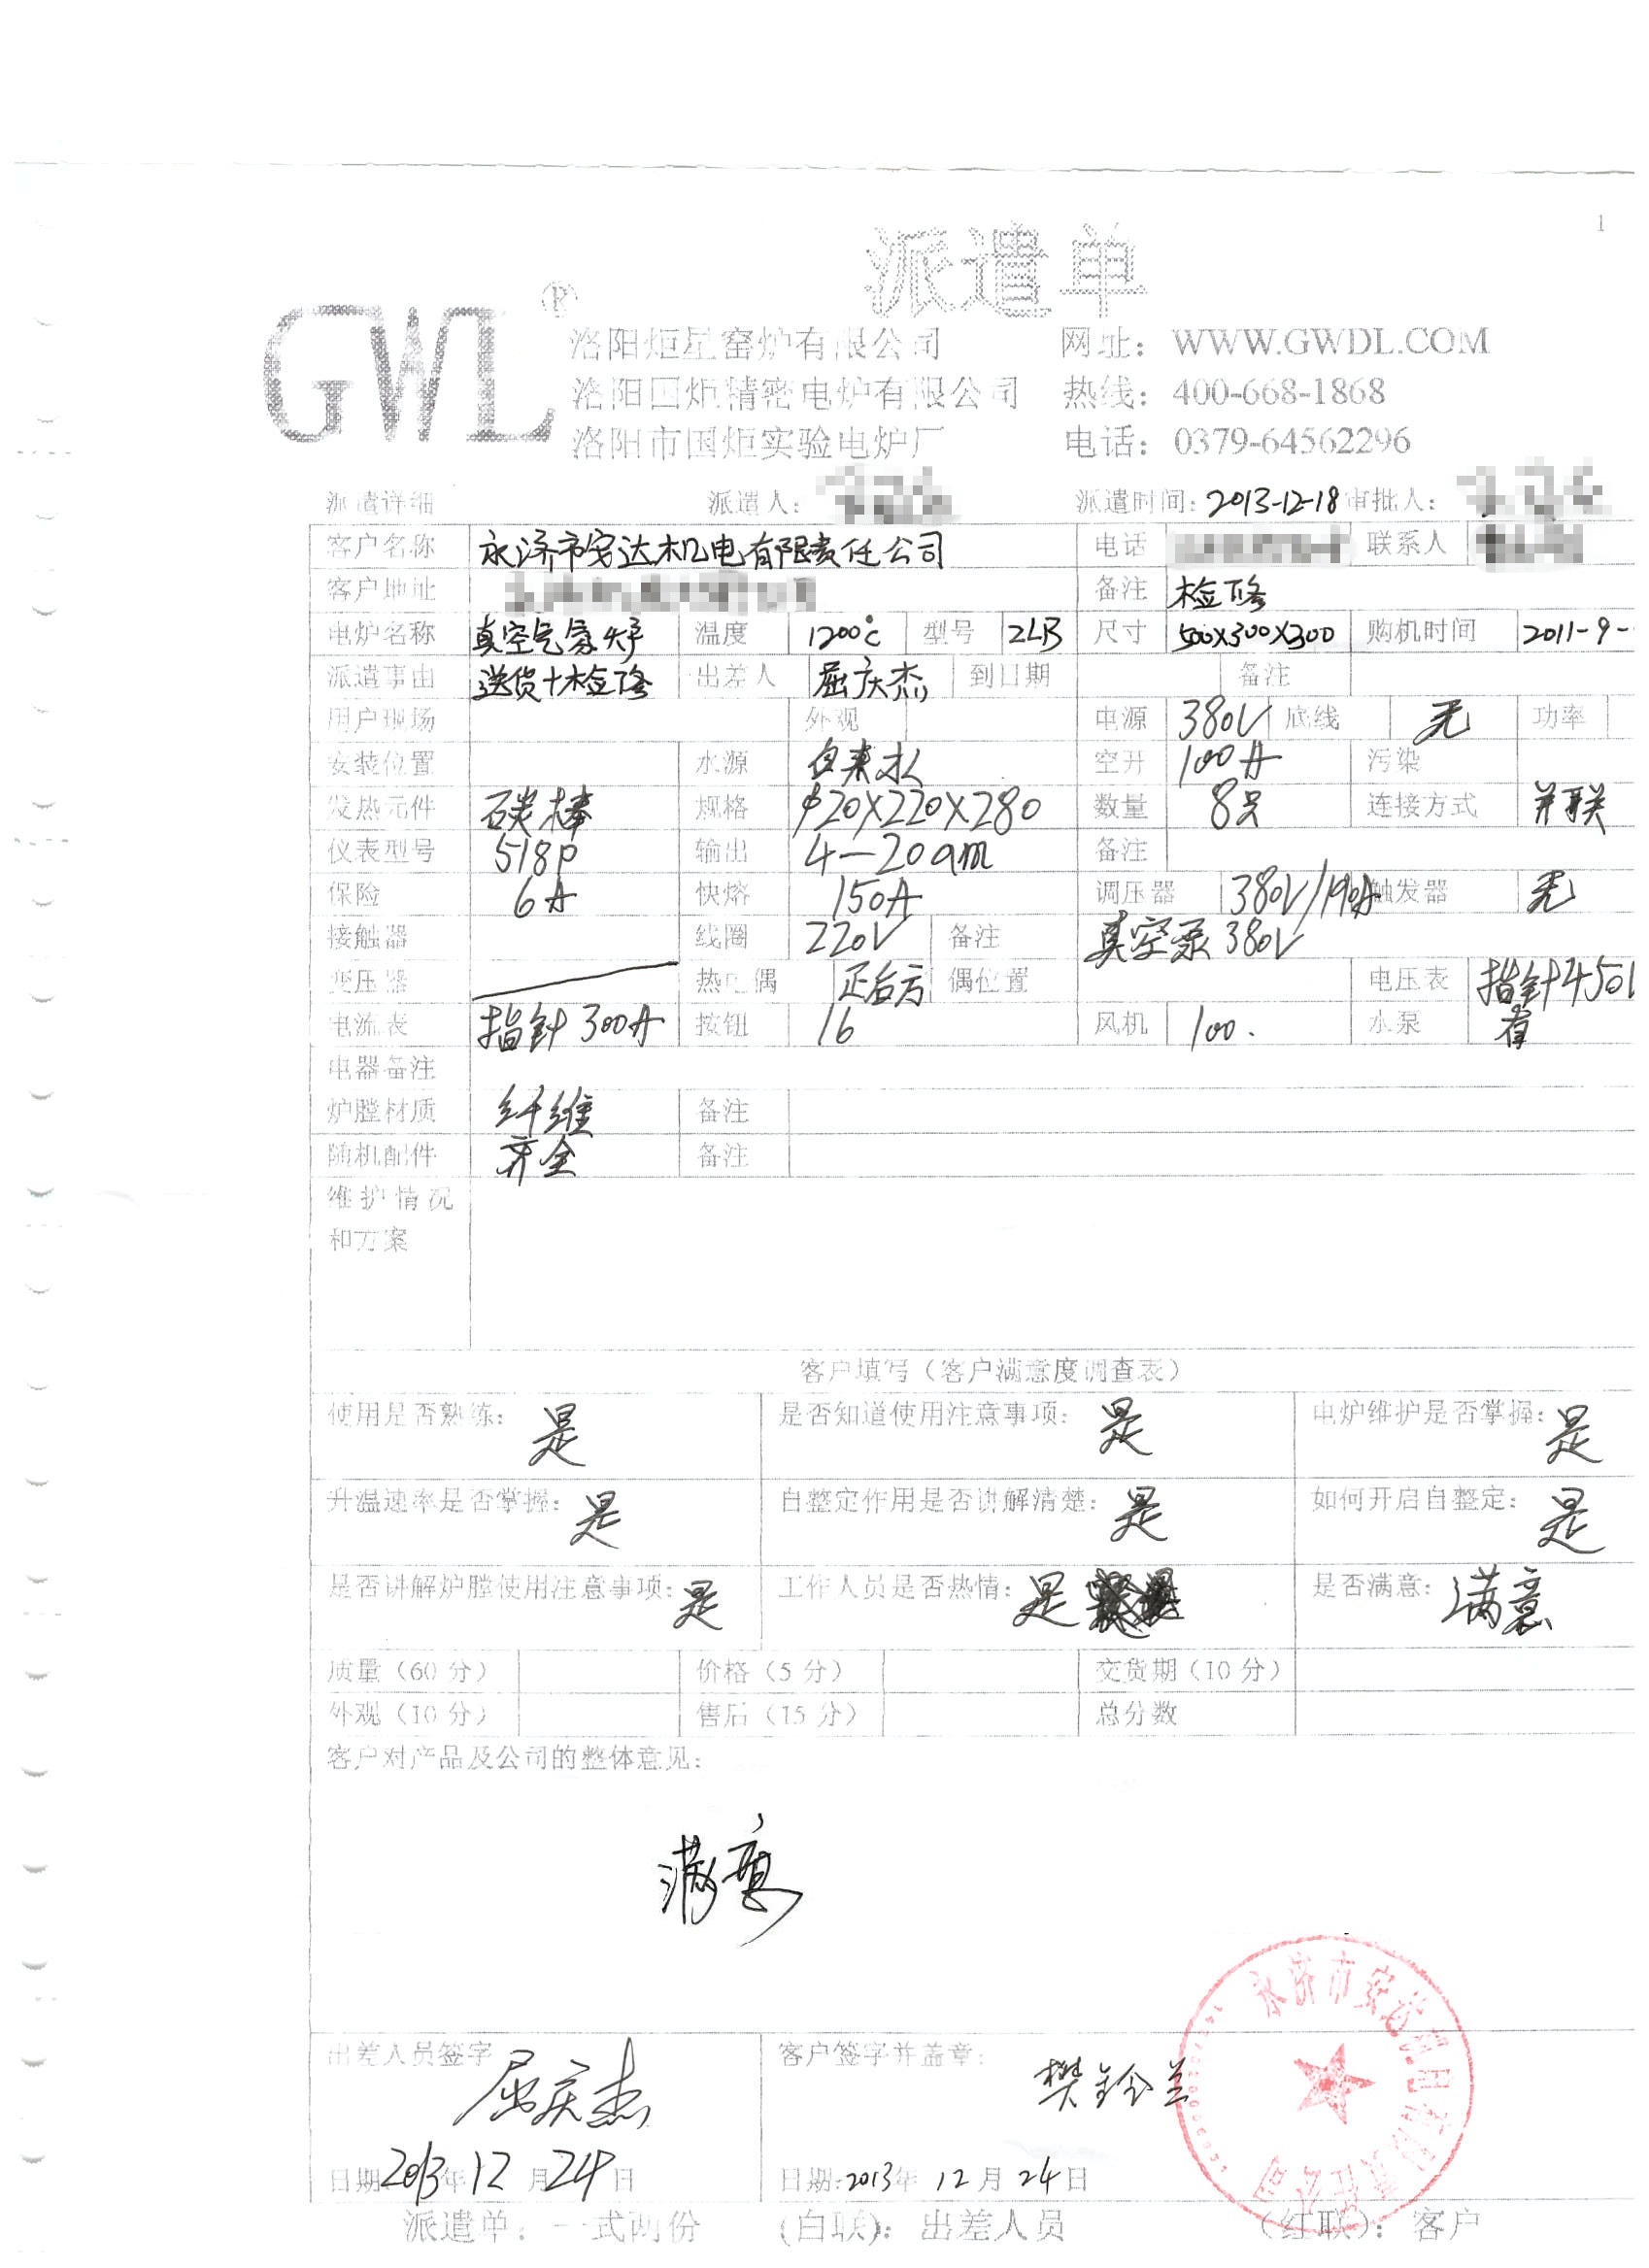 1
派遣单
GWDL®
洛阳炬星窑炉有限公司 网址：WWW.GWDL.COM
洛阳国炬精密电炉有限公司 热线：400-668-1868
洛阳市国炬实验电炉厂 电话：0379-64562296
派遣详细 派遣人： 派遣时间：2013-12-18 审批人：
客户名称 永济市安达机电有限责任公司 电话 联系人
客户地址 备注 检修
电炉名称 真空气氛炉 温度 1200℃ 型号 2LB 尺寸 500X300X300 购机时间 2011-9-
派遣事由 送货+检修 出差人 屈庆杰 到日期 备注
用户现场 外观 电源 380V 底线 无 功率
安装位置 水源 自来水 空开 100A 污染
发热元件 碳棒 规格 φ20X220X280 数量 8只 连接方式 并联
仪表型号 518P 输出 4-20am 备注
保险 6A 快熔 150A 调压器 380V/190A 触发器 无
接触器 线圈 220V 备注 真空泵380V
变压器 热电偶 正后方 偶位置 电压表 指针450V
电流表 指针300A 按钮 16 风机 100. 水泵 有
电器备注
炉膛材质 纤维 备注
随机配件 齐全 备注
维护情况
和方案
客户填写（客户满意度调查表）
使用是否熟练：是 是否知道使用注意事项：是 电炉维护是否掌握：是
升温速率是否掌握：是 自整定作用是否讲解清楚：是 如何开启自整定：是
是否讲解炉膛使用注意事项：是 工作人员是否热情：是 是否满意：满意
质量（60分） 价格（5分） 交货期（10分）
外观（10分） 售后（15分） 总分数
客户对产品及公司的整体意见：
满意
出差人员签字 屈庆杰 客户签字并盖章： 樊铃兰
永济市安达机电有限责任公司
日期2013年12月24日 日期：2013年12月24日
派遣单：一式两份 （白联）：出差人员 （红联）：客户